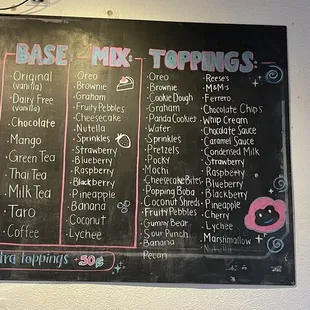 BASE
Original
(vanilla)
Dairy Free
(vanilla)
Chocolate
Mango
Green Tea
Thai Tea
Milk Tea
Taro
Coffee
MIX
Oreo
Brownie
Graham
Fruity Pebbles
Cheesecake
Nutella
Sprinkles
Strawberry
Blueberry
Raspberry
Blackberry
Pineapple
Banana
Coconut
Lychee
TOPPINGS:
Oreo
Brownie
Cookie Dough
Graham
Panda Cookies
Wafer
Sprinkles
Pretzels
Pocky
Mochi
Cheesecake Bites
Popping Boba
Coconut Shreds
Fruity Pebbles
Gummy Bear
Sour Punch
Banana
Pecan
Reese's
M&M's
Ferrero
Chocolate Chips
Whip Cream
Chocolate Sauce
Caramel Sauce
Condensed Milk
Strawberry
Raspberry
Blueberry
Blackberry
Pineapple
Cherry
Lychee
Marshmallow
Nutella
tra Toppings - 50¢